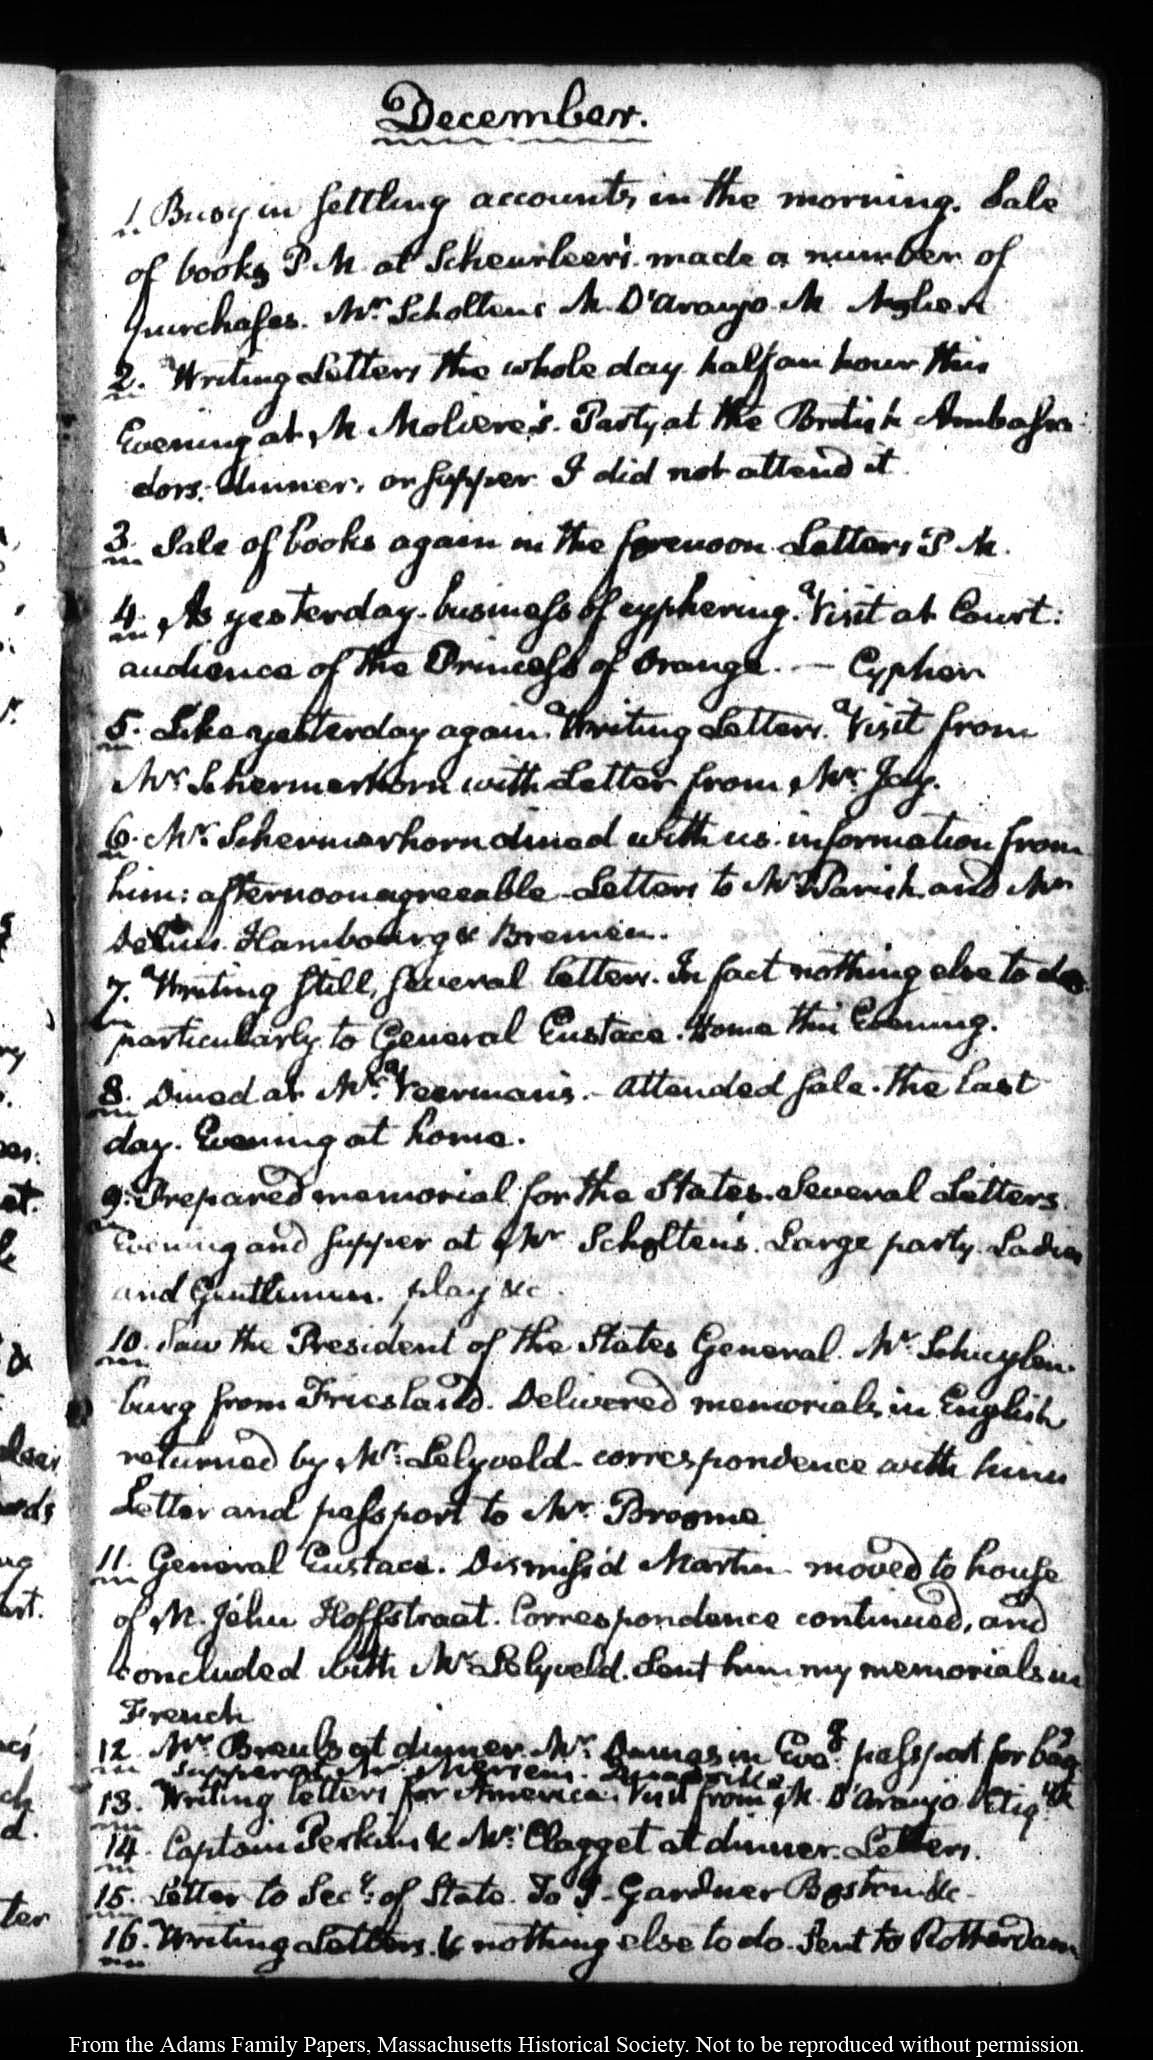 December.
1. Busy in settling accounts in the morning. Sale
of books P.M. at Scheurleer's. made a number of
purchases. Mr. Scholtens M. D'Araujo M.
2. Writing Letters the whole day half an hour this
Evening at M Moliere's. Party at the British Ambassa-
dors. dinner, or supper I did not attend it.
3. Sale of books again in the forenoon. Letters P.M.
4. As yesterday. business of cyphering. Visit at Court:
audience of the Princess of Orange. — Cypher
5. Like yesterday again. Writing Letters. Visit from
Mr. Schermerhorn with Letter from Mr. Jay.
6. Mr. Schermerhorn dined with us. information from
him: afternoon agreeable Letters to Mr. Parish and Mr
Delius. Hambourg & Bremen.
7. Writing still, several letters. In fact nothing else to do
particularly to General Eustace. Home this Evening.
8. Dined at Mr. Veerman's. – attended sale. the last
day. Evening at home.
9. Prepared memorial for the States. Several Letters.
Evening and supper at Mr Scholten's. Large party. Ladies
and Gentlemen. play &c.
10. Saw the President of the States General. Mr. Schuylen-
burg from Friesland. Delivered memorials in English
returned by Mr. Lelyveld – correspondence with him
Letter and passport to Mr. Broome
11. General Eustace. Dismiss'd Martin moved to house
of M. Jéhu Hoffstraat. Correspondence continued, and
concluded with Mr. Lelyveld. Sent him my memorials in
French
12. Mr. at dinner. Mr. Damas in Eveg. passport for bagg
supper at Mr.
13. Writing letters for America. Visit from M. D'Araujo Etiqte
14. Captain Perkins & Mr. Clagget at dinner. Letters.
15. Letter to Secy. of State. To J. Gardner Boston &c.
16. Writing Letters. & nothing else to do. Sent to Rotterdam
From the Adams Family Papers, Massachusetts Historical Society. Not to be reproduced without permission.